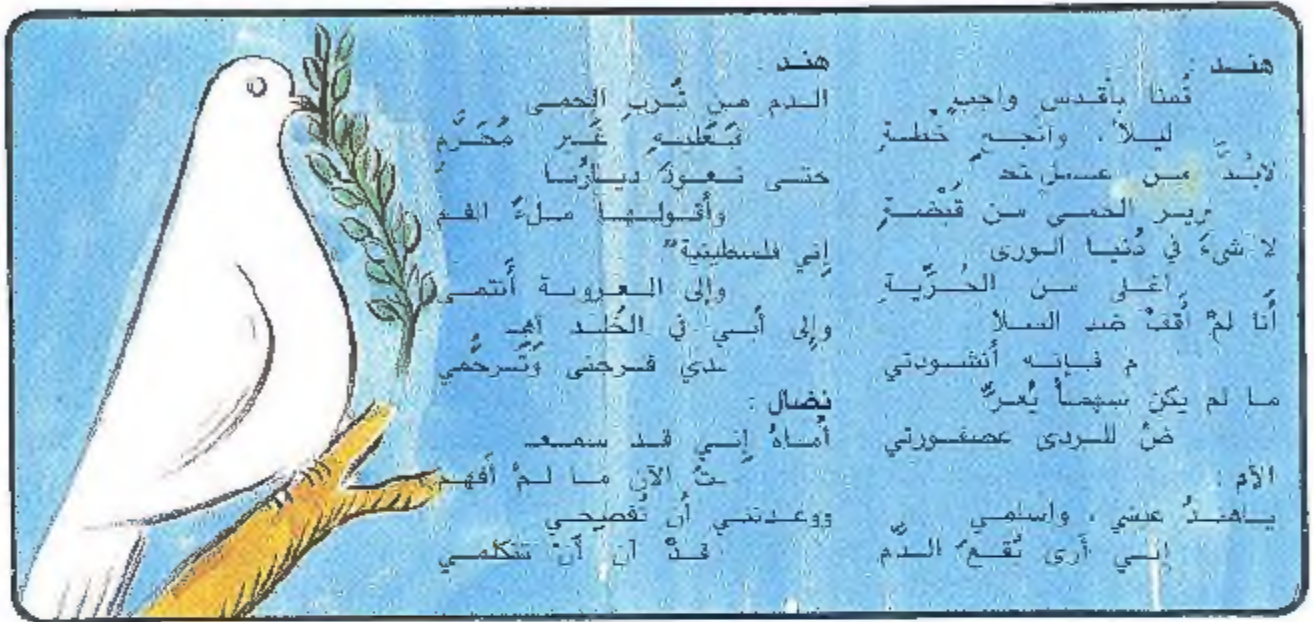 هنــد :
قُمنا بأقـدس واجبٍ
ليـلاً ، واتجـهِ خُطــةِ
لابُـدَّ مـن عـمـلٍ لتحـ
ـريـر الحمـى مـن قَبْضــةِ
لا شيءَ في دُنيـا الـورى
أغـلى مـن الحُـرِّيـةِ
أنا لمْ أقفْ ضد السـلا
م فـإنـه أنشـودتي
مـا لم يكن سهمـاً يُعـرِّ
ضُ للـردى عصفـورتي
الأم :
يـاهنـدُ عيشي ، واسلمي
إنـي أرى بُقـعَ الـدَّم
هند :
الـدم مـن تُـربِ الحمـى
غَـير مُحَـرَّمِ
حتـى تـعـودَ ديـارُنـا
وأقـولهـا مـلءَ الفـم
إني فلسطينية"
وإلى الـعـروبـة أنتمـي
وإلى أبـي في الخُلـد أهـ
ـدي فـرحتي وتَـرحُّمي
نضال :
أمـاهُ إنـي قـد سمعـ
ـتُ الآن مـا لـمْ أفهـم
ووعـدتنـي أن تُفصحـي
قـدْ آن أنْ تتكلمـي